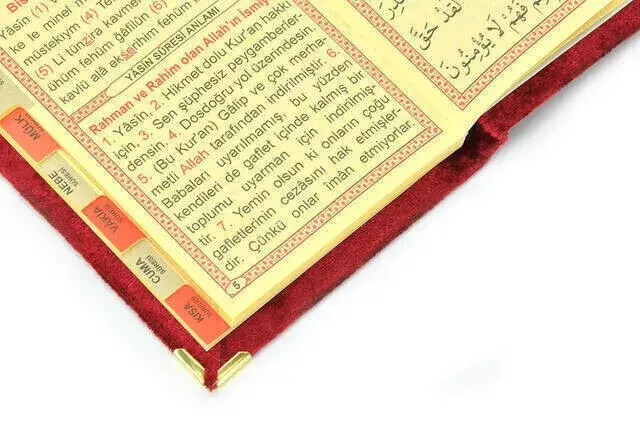 Yâsîn (1)
ke le minel m
müstekıym (4) Te
(5) Li-tünzira kavmen
ühüm fehüm ğâfilûn (6)
kavlü alâ ekserihim fehüm
YÂSÎN SÛRESİ ANLAMI
Rahman ve Rahîm olan Allah'ın İsmiy
1. Yâsîn, 2. Hikmet dolu Kur'an hakkı
için, 3. Sen şüphesiz peygamberler-
densin. 4. Dosdoğru yol üzerindesin.
5. (Bu Kur'an) Gâlip ve çok merha-
metli Allah tarafından indirilmiştir. 6.
Babaları uyarılmamış, bu yüzden
kendileri de gaflet içinde kalmış bir
toplumu uyarman için indirilmiş-
tir. 7. Yemin olsun ki onların çoğu
gafletlerinin cezâsını hak etmişler-
dir. Çünkü onlar îmân etmiyorlar.
5
MÜLK
SÛRESİ
NEBE
SÛRESİ
VÂKIA
SÛRESİ
CUMA
SÛRESİ
KISA
SÛRELER
لَقَدْ حَقَّ
فَهُمْ لَا يُؤْمِنُونَ